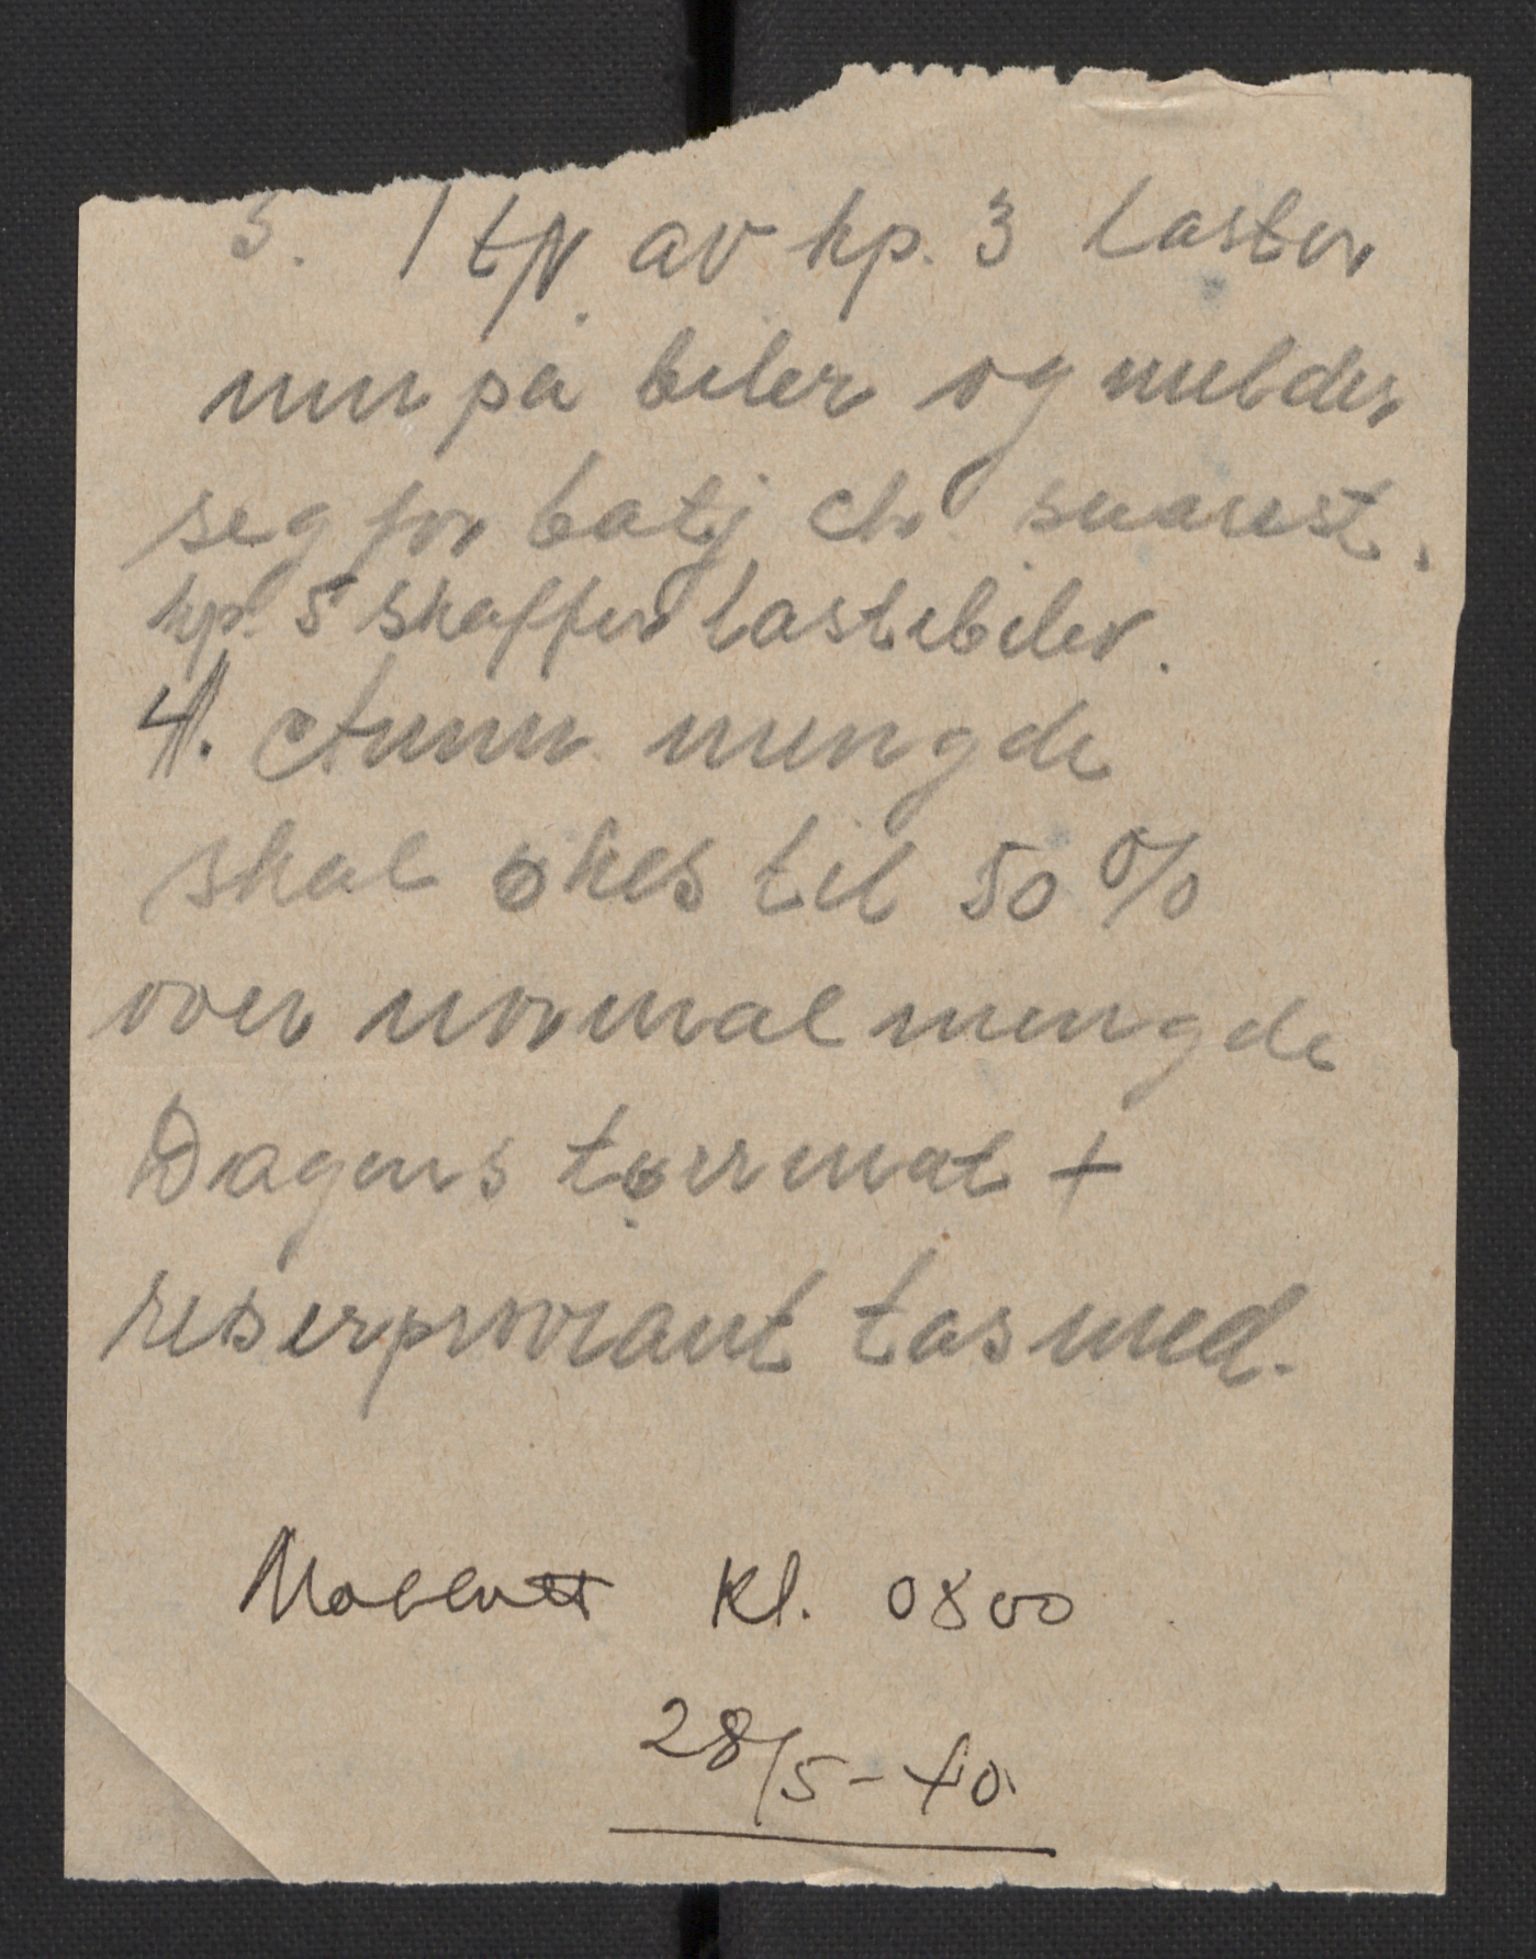 3. 1 tp. av kp. 3 laster
inn på biler og melder
seg for batj ch. snarest.
kp. 5 skaffer lastebiler.
4. Amm. mengde
skal økes til 50 %
over normal mengde
Dagens tørrmat +
reserproviant tas med.
Mottatt Kl. 0800
28/5-40